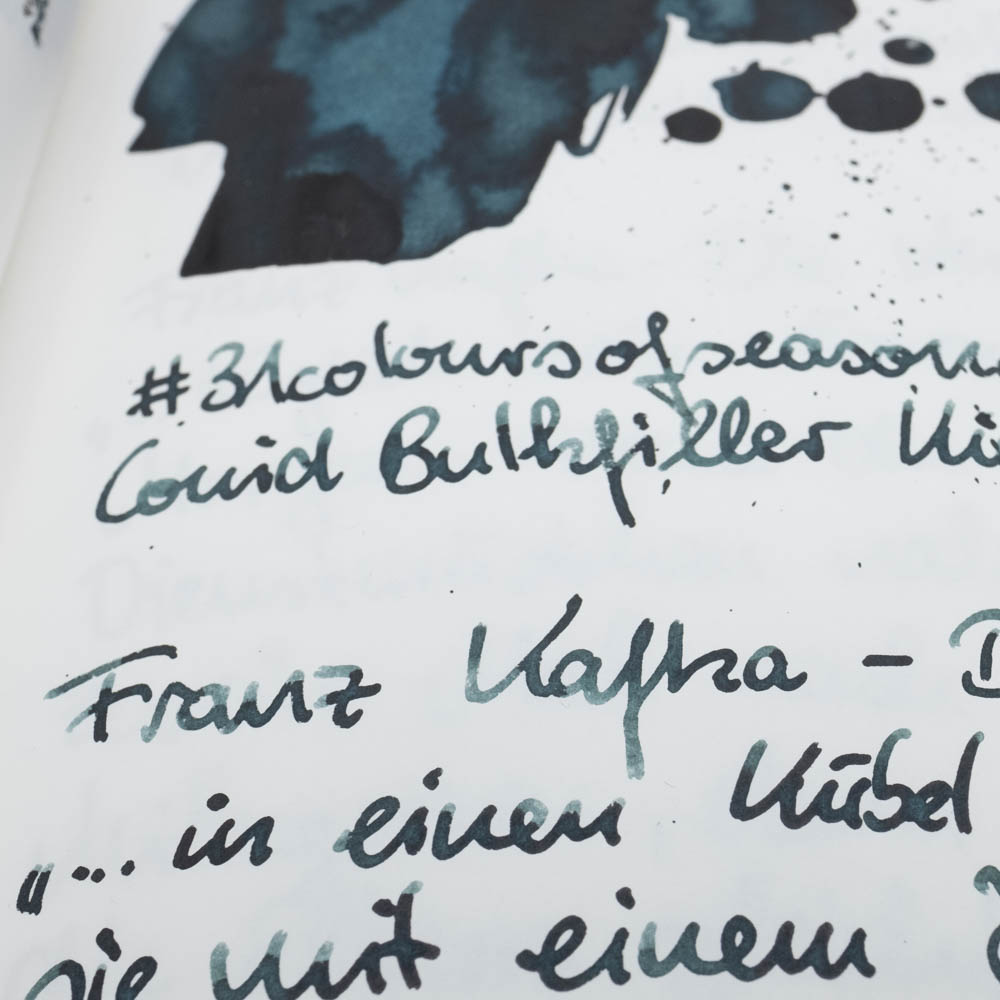 #31coloursofseason
Conid Bulkfiller
Franz Kafka –
„... in einen Kübel
sie mit einem